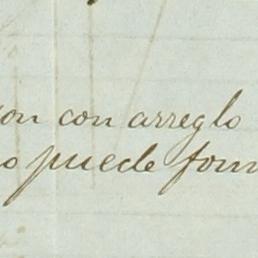 con con arreglo
o puede tom